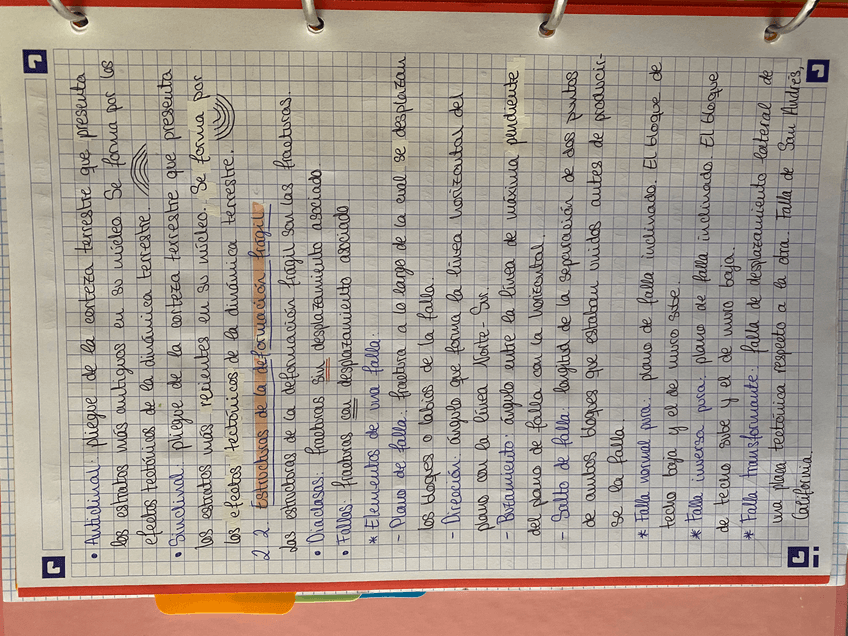 • Anticlinal: pliegue de la corteza terrestre que presenta
los estratos más antiguos en su núcleo. Se forma por los
efectos tectónicos de la dinámica terrestre.
• Sinclinal: pliegue de la corteza terrestre que presenta
los estratos más recientes en su núcleo. Se forma por
los efectos tectónicos de la dinámica terrestre.
2.2. Estructuras de la deformación frágil
Las estructuras de la deformación frágil son las fracturas.
• Diaclasas: fracturas sin desplazamiento asociado.
• Fallas: fracturas con desplazamiento asociado
* Elementos de una falla:
- Plano de falla: fractura a lo largo de la cual se desplazan
los bloques o labios de la falla.
- Dirección: ángulo que forma la línea horizontal del
plano con la línea Norte-Sur.
- Buzamiento: ángulo entre la línea de máxima pendiente
del plano de falla con la horizontal.
- Salto de falla: longitud de la separación de dos puntos
de ambos bloques que estaban unidos antes de producir-
se la falla.
* Falla normal pura: plano de falla inclinado. El bloque de
techo baja y el de muro sube.
* Falla inversa pura: plano de falla inclinado. El bloque
de techo sube y el de muro baja.
* Falla transformante: falla de desplazamiento lateral de
una placa tectónica respecto a la otra. Falla de San Andrés,
California